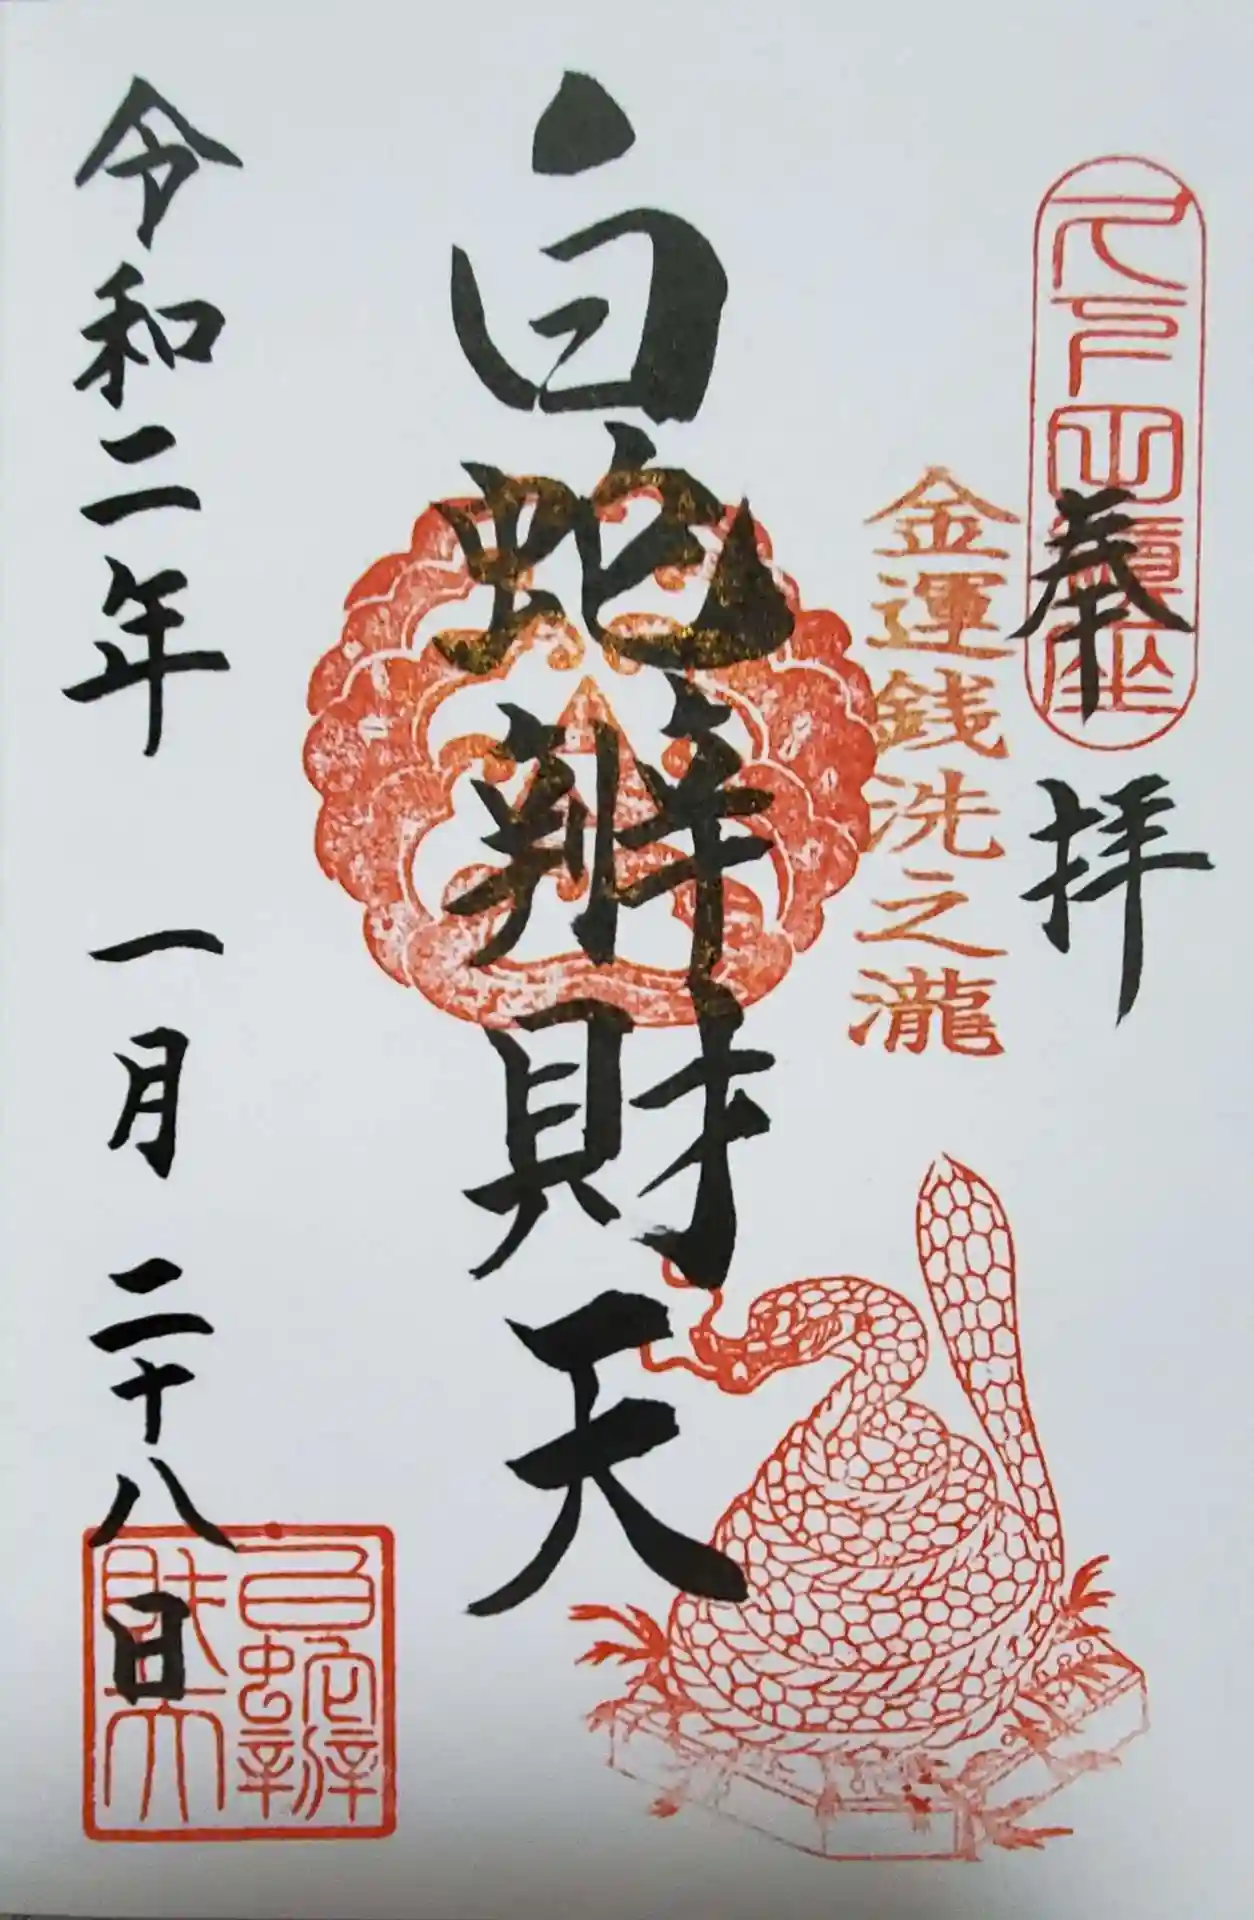 奉拝
金運銭洗之瀧
白蛇辨財天
令和二年 一月 二十八日
白蛇辨財天